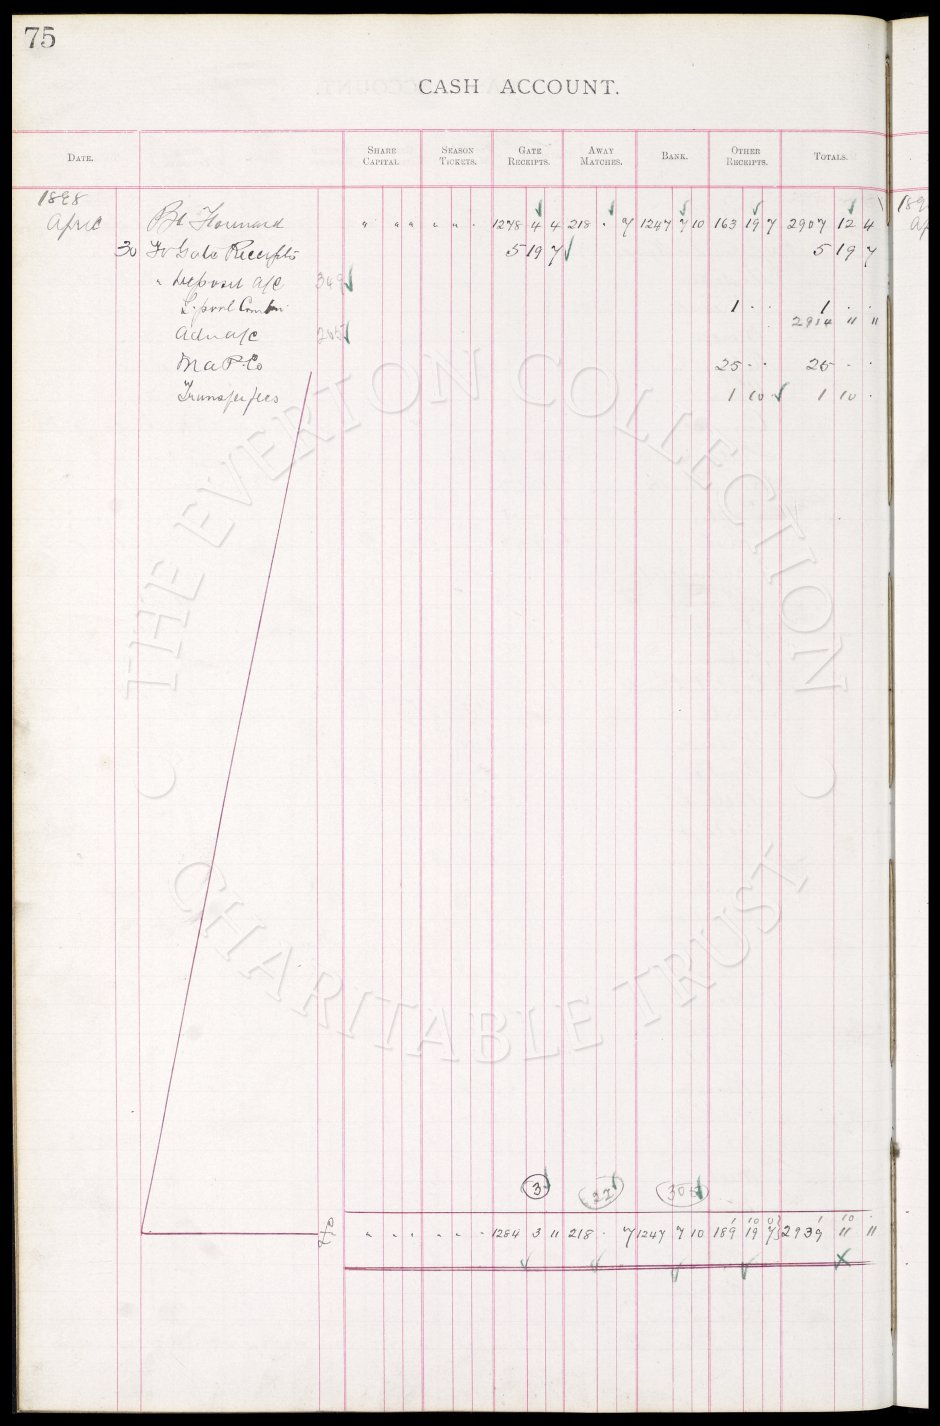 75
CASH ACCOUNT.
DATE. SHARE CAPITAL SEASON TICKETS. GATE RECEIPTS. AWAY MATCHES. BANK. OTHER RECEIPTS. TOTALS.
1898
April Bt Forward " " " " " " 1278 4 4 218 . 7 1247 7 10 163 19 7 2907 12 4
30 To Gate Receipts 5 19 7 5 19 7
" Deposit a/c 349
L.pool 1 . . 1 . .
2914 " "
Adn a/c 205
25 . . 25 . .
Transfer fees 1 10 . 1 10 .
THE EVERTON COLLECTION
CHARITABLE TRUST
3 22 305
1 10 0 1 10 .
£ " . . " " . 1284 3 11 218 . 7 1247 7 10 189 19 7 2939 11 11